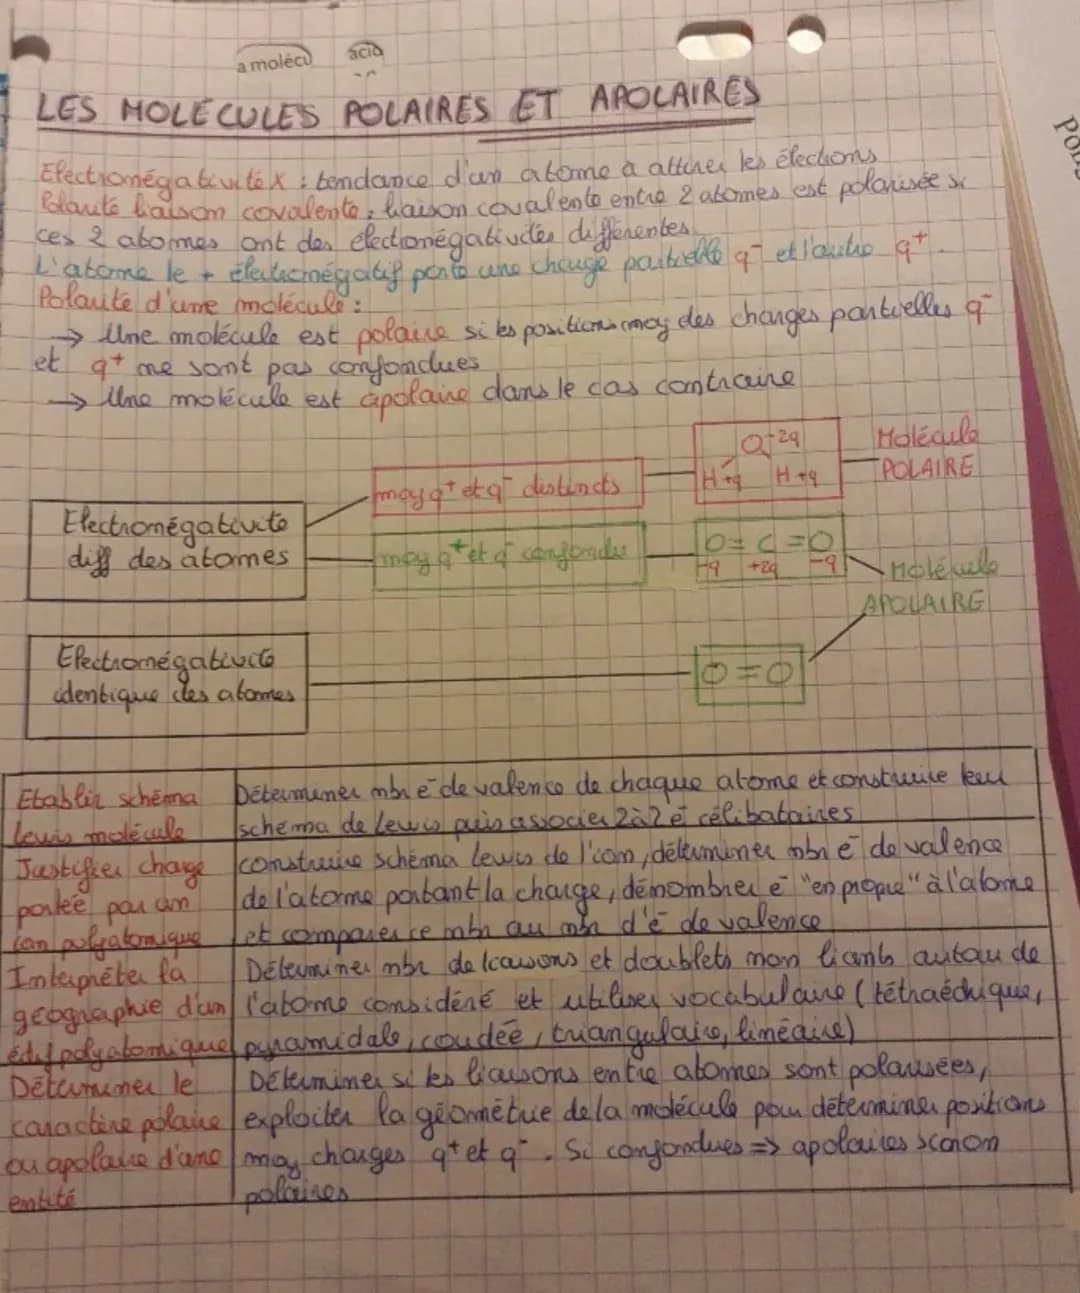 a molécu
acid
LES MOLÉCULES POLAIRES ET APOLAIRES
Electronégativité X : tendance d'un atome à attirer les électrons
Polarité liaison covalente : liaison covalente entre 2 atomes est polarisée si
ces 2 atomes ont des électronégativités différentes
L'atome le + électronégatif porte une charge partielle q⁻ et l'autre q⁺.
Polarité d'une molécule :
→ Une molécule est polaire si les positions moy des charges partielles q⁻
et q⁺ ne sont pas confondues
→ Une molécule est apolaire dans le cas contraire
O -2q
H+q H+q
Molécule
POLAIRE
moy q⁺ et q⁻ distincts
Electronégativité
diff des atomes
moy q⁺ et q⁻ confondu
O=C=O
-q +2q -q
Molécule
APOLAIRE
Electronégativité
identique des atomes
O=O
Etablir schéma
Lewis molécule
Déterminer nbr é de valence de chaque atome et construire leur
schéma de Lewis puis associer 2à2 é célibataires
Justifier charge
portée par un
ion polyatomique
construire schéma Lewis de l'ion, déterminer nbr é de valence
de l'atome portant la charge, dénombrer é "en propre" à l'atome
et comparer ce nbr au nbr d'é de valence
Interpréter la
géographie d'un
édif polyatomique
Déterminer nbr de liaisons et doublets non liants autour de
l'atome considéré et utiliser vocabulaire (tétraédrique,
pyramidale, coudée, triangulaire, linéaire)
Déterminer le
caractère polaire
ou apolaire d'une
entité
Déterminer si les liaisons entre atomes sont polarisées,
exploiter la géométrie de la molécule pour déterminer positions
moy charges q⁺ et q⁻. Si confondues => apolaires sinon
polaires